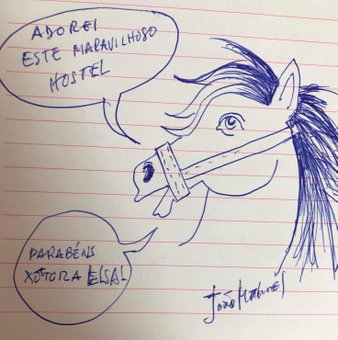 ADOREI
ESTE MARAVILHOSO
HOSTEL
PARABÉNS
XÔTORA ELSA!
João Manuel